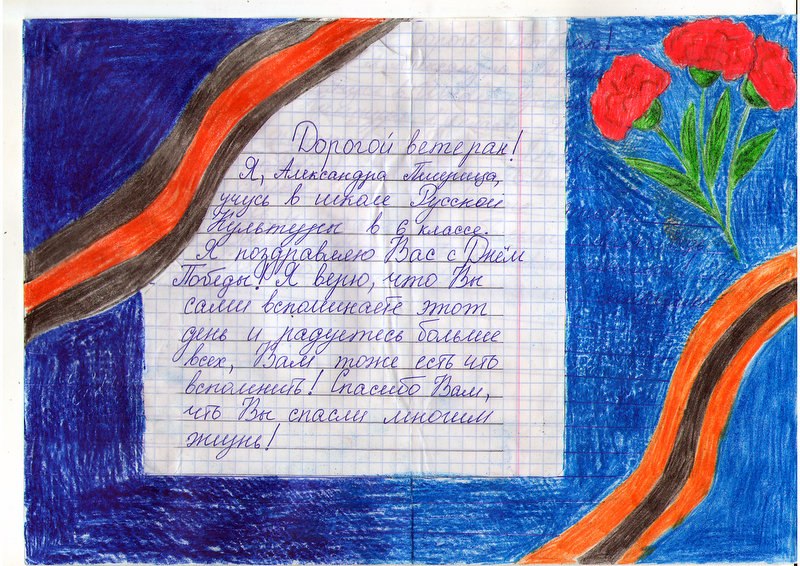 Дорогой ветеран!
Я, Александра
учусь в школе Русской
Культуры в 6 классе.
Я поздравляю Вас с Днём
Победы! Я верю, что Вы
сами вспоминаете этот
день и радуетесь больше
всех, Вам тоже есть что
вспомнить! Спасибо Вам,
что Вы спасли многим
жизнь!